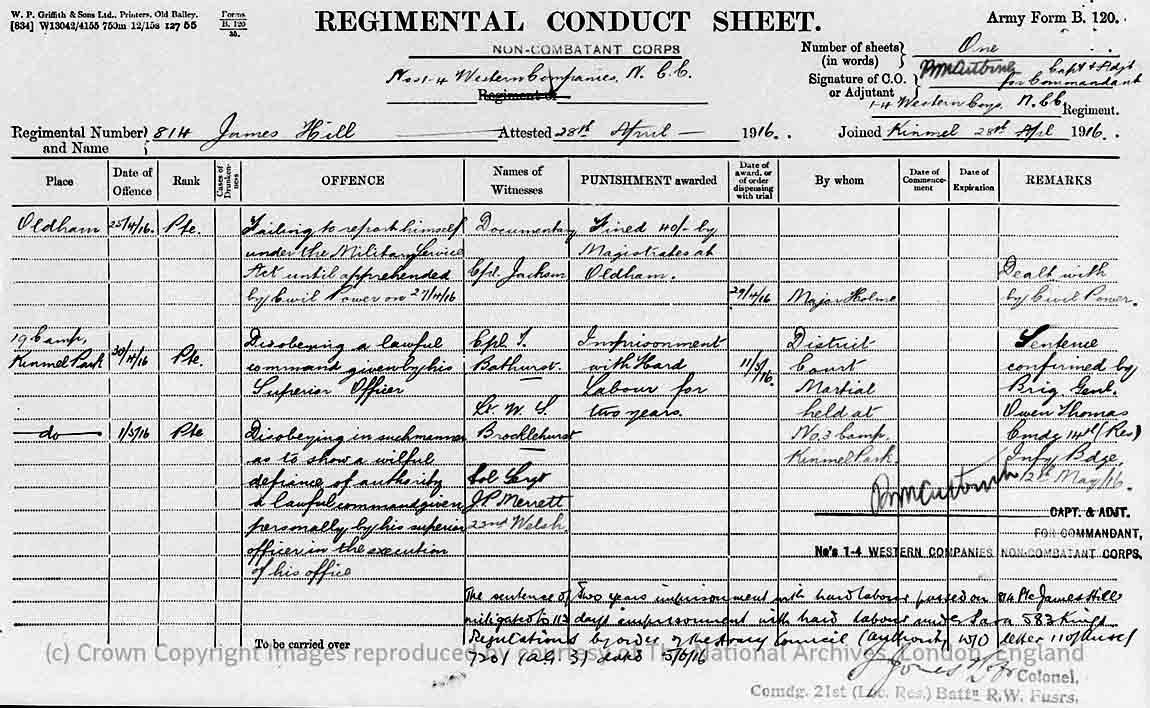 W. P. Griffith & Sons Ltd., Printers, Old Bailey.
[834] W13042/4155 750m 12/15s 127 55
Forms
B. 120
35.
REGIMENTAL CONDUCT SHEET.
Army Form B. 120.
NON-COMBATANT CORPS
Nos 1-4 Western Companies, N. C. C.
Regiment of
Number of sheets (in words) One
Signature of C.O. or Adjutant Capt & Adjt
for Commandant
1-4 Western Coys. N.C.C. Regiment.
Regimental Number and Name 814 James Hill Attested 28th April 1916. Joined Kinmel 28th Apl 1916.
Place
Date of Offence
Rank
Cases of Drunkenness
OFFENCE
Names of Witnesses
PUNISHMENT awarded
Date of award, or of order dispensing with trial
By whom
Date of Commencement
Date of Expiration
REMARKS
Oldham 25/4/16. Pte. Failing to report himself Documentary Fined 40/- by
under the Military Service Magistrates at
Act until apprehended Cpl. Jackson Oldham. Dealt with
by Civil Power on 27/4/16 29/4/16 Major Holme by Civil Power.
19 Camp, Kinmel Park 30/4/16 Pte. Disobeying a lawful Cpl. T. Imprisonment District Sentence
command given by his Bathurst. with Hard 11/5/16. Court confirmed by
Superior Officer Labour for Martial Brig. Genl.
Lt. W. S. two years. held at Owen Thomas
do 1/5/16 Pte Disobeying in such manner Brocklehurst No. 3 Camp, Cmdg 14th (Res)
as to show a wilful Kinmel Park. Infy Bdge
defiance of authority Col Sergt 12th May/16.
a lawful command given J.P. Merrett
personally by his superior 22nd Welsh
officer in the execution
of his office
CAPT. & ADJT.
FOR COMMANDANT,
No's 1-4 WESTERN COMPANIES NON-COMBATANT CORPS.
The sentence of Two years imprisonment with hard labour passed on 814 Pte James Hill
mitigated to 112 days imprisonment with hard labour under para 583 Kings
Regulations by order of the Army Council (authority W/O letter
7201 (AG 3) dated
To be carried over
Colonel.
Comdg. 21st (Loc. Res.) Battn R.W. Fusrs.
(c) Crown Copyright Images reproduced by courtesy of The National Archives, London, England